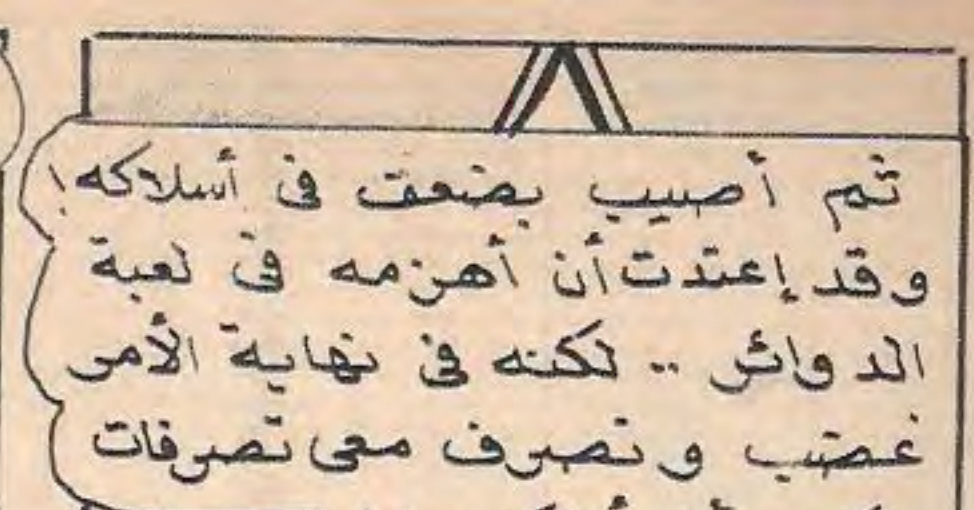 ثم أصيب بضعف فى أسلاكه!
وقد إعتدت أن أهزمه فى لعبة
الدوائر .. لكنه فى نهاية الأمر
غضب وتصرف معى تصرفات